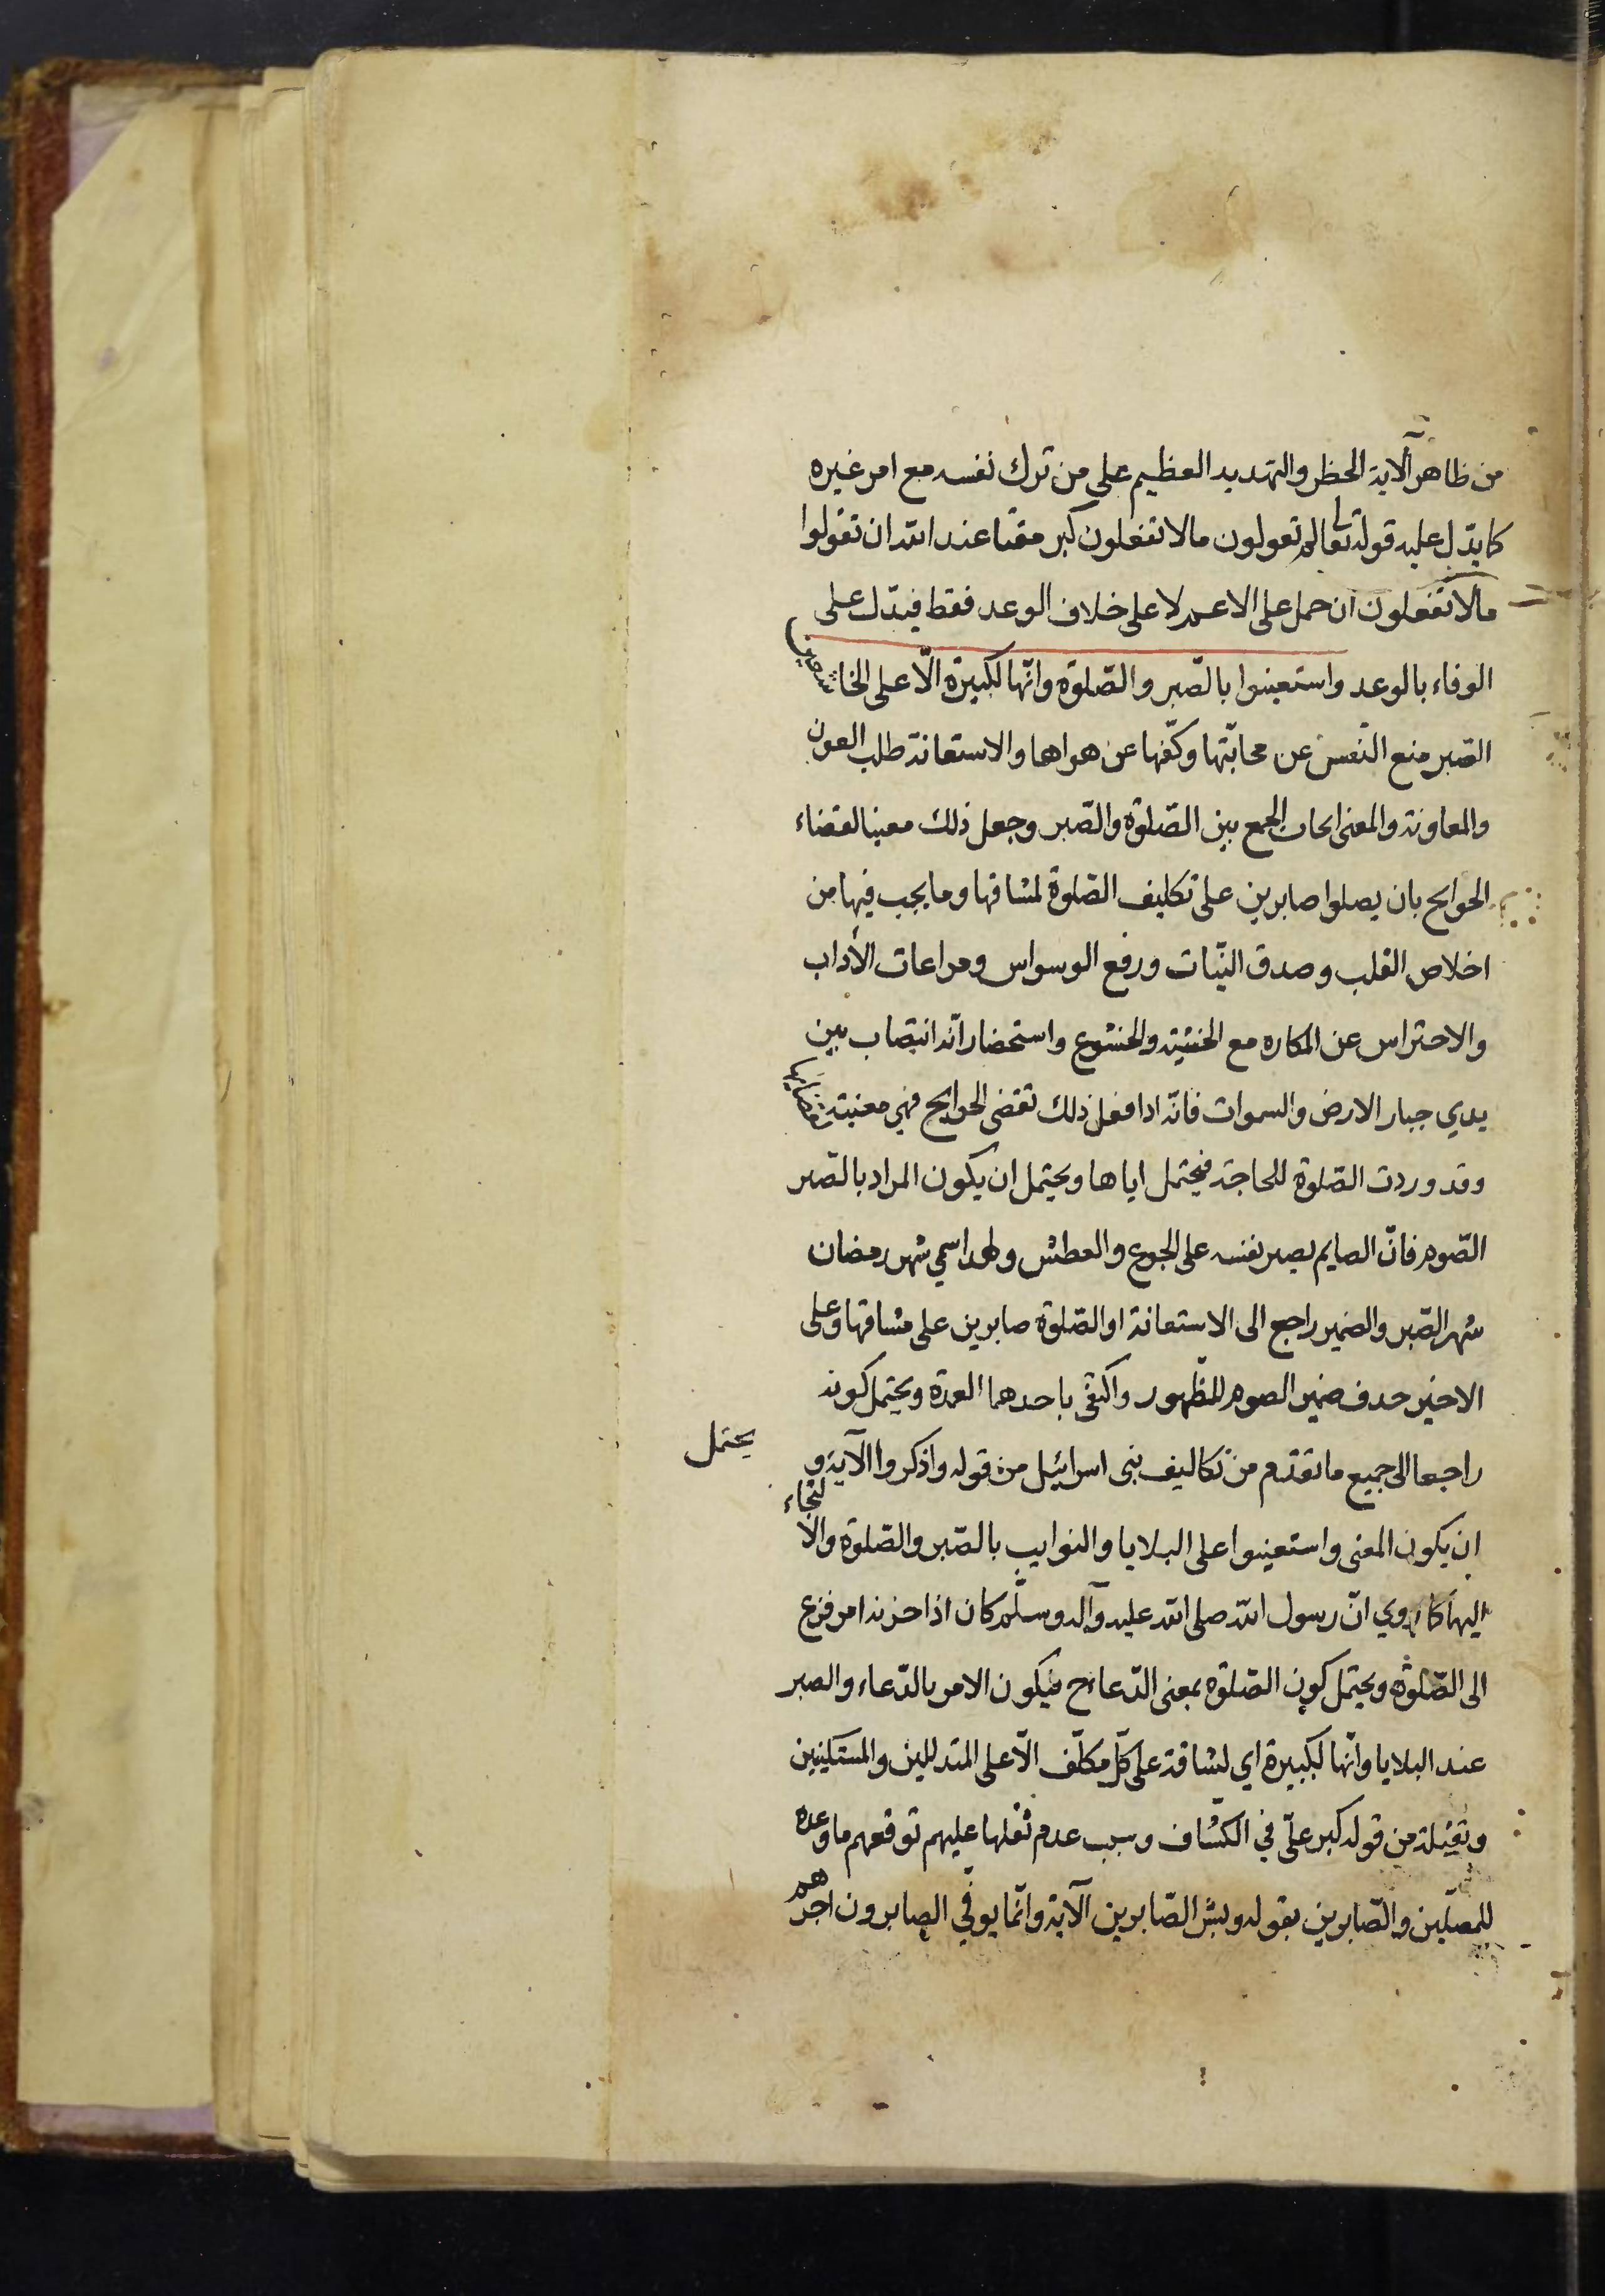 من ظاهر الآية الحظر والتهديد العظيم على من ترك نفسه مع امر غيره
كما يدّل عليه قوله تعالى لم تقولون مالا تفعلون كبر مقتا عند الله ان تقولوا
مالا تفعلون ان حمل على الاعم لا على خلاف الوعد فقط فيدّل على
الوفاء بالوعد واستعينوا بالصّبر والصّلوة وانّها لكبيرة الّا على الخاشعين
الصّبر منع النّفس عن محابّتها وكفّها عن هواها والاستعانة طلب العون
والمعاونة والمعنى الجمع بين الصّلوة والصّبر وجعل ذلك معينا لقضاء
الحوايج بان يصلوا صابرين على تكليف الصّلوة لمشاقها وما يجب فيها من
اخلاص القلب وصدق النيّات ورفع الوسواس ومراعات الآداب
والاحتراس عن المكاره مع الخشية والخشوع واستحضار انّه انتصاب بين
يدي جبار الارض والسموات فانّه اذا فعل ذلك تقضى الحوايج فهي معنية
وقد وردت الصّلوة للحاجة فيحتمل اياها ويحتمل ان يكون المراد بالصّبر
الصّوم فانّ الصايم يصبر نفسه على الجوع والعطش ولهذا سمي شهر رمضان
شهر الصّبر والضمير راجع الى الاستعانة او الصّلوة صابرين على مشاقها وعلى
الاخير حذف ضمير الصوم للظّهور واكتفى باحدهما العمدة ويحتمل كونه
راجعا الى جميع ما تقدّم من تكاليف بنى اسرائيل من قوله واذكروا الآية و يحتمل
ان يكون المعنى واستعينوا على البلايا والنوايب بالصّبر والصّلوة والالتجاء
اليها كما روي انّ رسول الله صلى الله عليه وآله وسلّم كان اذا حزنه امر فزع
الى الصّلوة ويحتمل كون الصّلوة بمعنى الدّعاء ح فيكون الامر بالدّعاء والصبر
عند البلايا وانّها لكبيرة اي لشاقة على كلّ مكلّف الّا على المتذللين والمستكينين
وثقيلة من قوله كبر علىّ في الكشّاف وسبب عدم ثقلها عليهم توقعهم ما وعده
للمصلّين والصّابرين بقوله وبشر الصّابرين الآية وانّما يوفّى الصابرون اجرهم